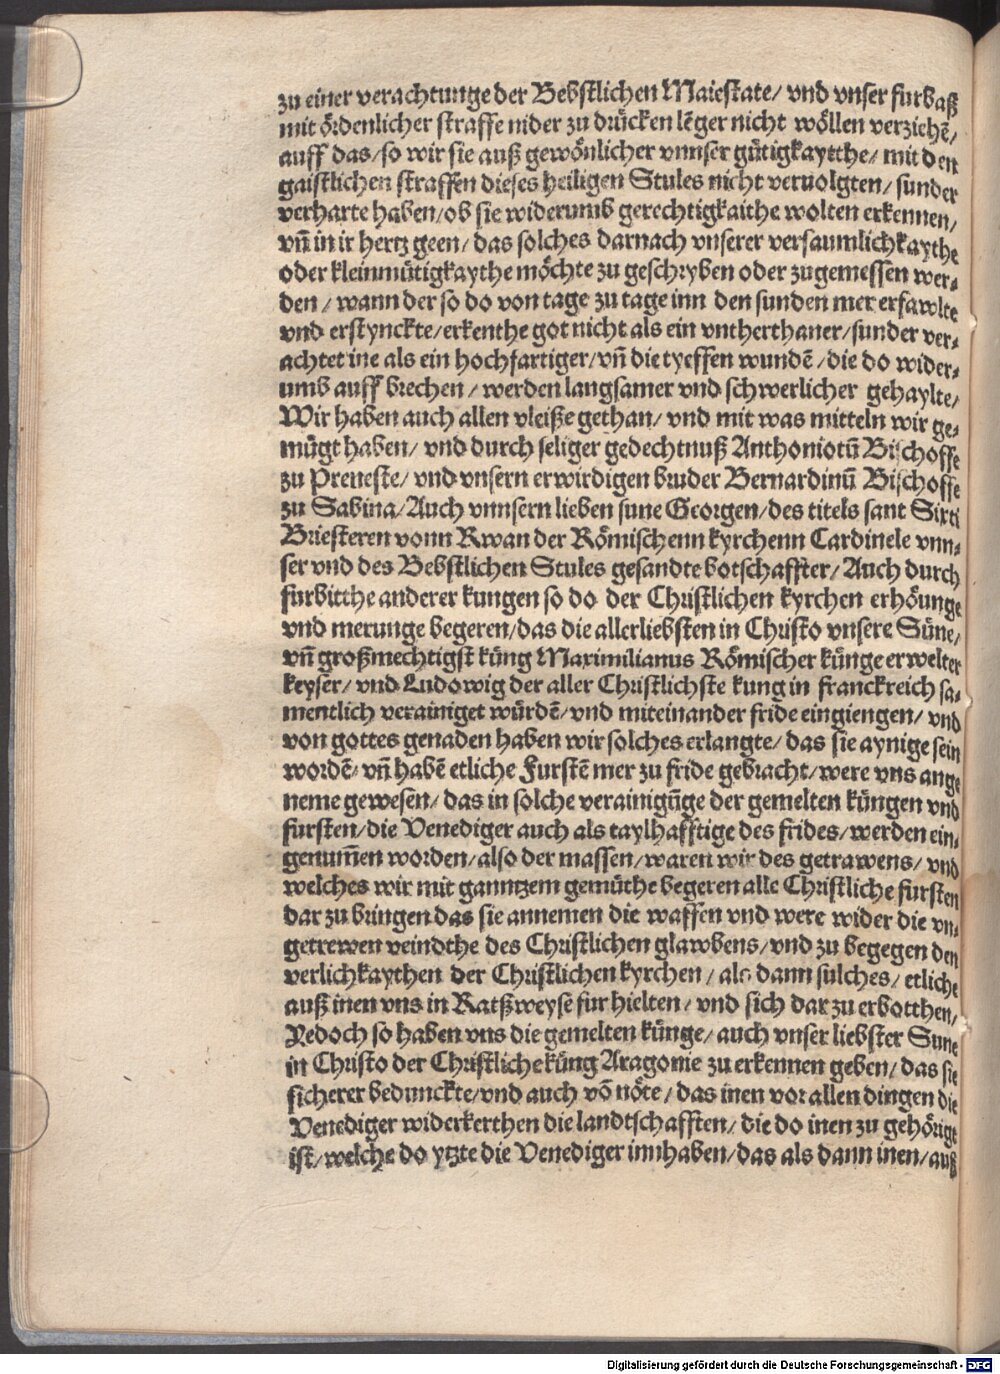 zu einer verachtunge der Bebstlichen Maiestate/ vnd vnser furbaß
mit ördenlicher straffe nider zu drücken lēger nicht wöllen verziehē/
auff das/so wir sie auß gewönlicher vnnser gütigkaytthe/ mit den
gaistlichen straffen dieses heiligen Stules nicht veruolgten/ sunder
verharte haben/ob sie widerumb gerechtigkaithe wolten erkennen/
vn̄ in ir hertz geen/ das solches darnach vnserer versaumlichkaythe
oder kleinmütigkaythe möchte zu geschryben oder zugemessen wer⸗
den / wann der so do von tage zu tage inn den sunden mer erfawlte
vnd erstynckte/erkenthe got nicht als ein vntherthaner/sunder ver⸗
achtet ine als ein hochfartiger/vn̄ die tyeffen wundē /die do wider⸗
umb auff brechen / werden langsamer vnd schwerlicher gehaylte/
Wir haben auch allen vleiße gethan/ vnd mit was mitteln wir ge⸗
mügt haben/ vnd durch seliger gedechtnuß Anthoniotū Bischoffe
zu Preneste/ vnd vnsern erwirdigen bruder Bernardinū Bischoffe
zu Sabina/Auch vnnsern lieben sune Georgen/des titels sant Sixti
Briesteren vonn Rwan der Römischenn kyrchenn Cardinele vnn⸗
ser vnd des Bebstlichen Stules gesandte botschaffter/ Auch durch
furbitthe anderer kungen so do der Christlichen kyrchen erhöunge
vnd merunge begeren/das die allerliebsten in Christo vnsere Süne/
vn̄ großmechtigst küng Maximilianus Römischer künge erwelter
keyser/ vnd Ludowig der aller Christlichste kung in franckreich sa⸗
mentlich verainiget würdē/ vnd miteinander fride eingiengen/ vnd
von gottes genaden haben wir solches erlangte/ das sie aynige sein
wordē/ vn̄ habē etliche Furstē mer zu fride gebracht/were vns ange
neme gewesen/ das in solche verainigūge der gemelten küngen vnd
fursten/die Venediger auch als taylhafftige des frides/werden ein⸗
genum̄en worden/also der massen/waren wir des getrawens/ vnd
welches wir mit ganntzem gemüthe begeren alle Christliche fursten
dar zu bringen das sie annemen die waffen vnd were wider die vn⸗
getrewen veindthe des Christlichen glawbens/vnd zu begegen den
verlichkaythen der Christlichen kyrchen / als dann sulches/ etliche
auß inen vns in Ratßweyse fur hielten/ vnd sich dar zu erbotthen/
Yedoch so haben vns die gemelten künge/ auch vnser liebster Sune
in Christo der Christliche küng Aragonie zu erkennen geben/ das sie
sicherer bedunckte/vnd auch vō nöte/ das inen vor allen dingen die
Venediger widerkerthen die landtschafften/ die do inen zu gehörigt
ist/welche do ytzte die Venediger innhaben/das als dann inen/auß
Digitalisierung gefördert durch die Deutsche Forschungsgemeinschaft - DFG